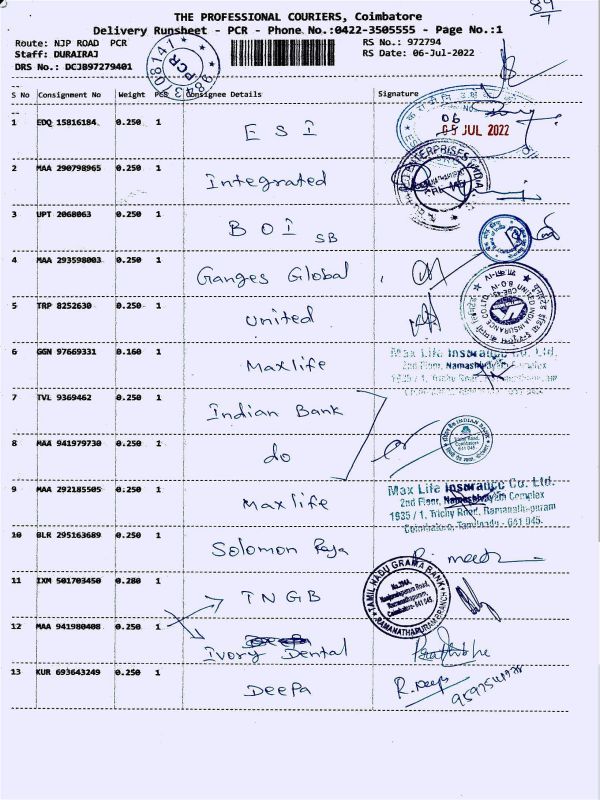 THE PROFESSIONAL COURIERS, Coimbatore
Delivery Runsheet - PCR - Phone No.:0422-3505555 - Page No.:1
Route: NJP ROAD PCR
RS No.: 972794
Staff: DURAIRAJ
RS Date: 06-Jul-2022
DRS No.: DCJB97279401
PCR
S No Consignment No Weight PCS Consignee Details Signature
1 EDQ 15816184 0.250 1 ESI
06
05 JUL 2022
2 MAA 290798965 0.250 1 Integrated
3 UPT 2068063 0.250 1 BOI SB
4 MAA 293598003 0.250 1 Ganges Global
5 TRP 8252630 0.250 1 United
UNITED INDIA INSURANCE CO. LTD.
6 GGN 97669331 0.160 1 Maxlife
Max Life Insurance Co. Ltd.
2nd Floor, Namashivayam Complex
1935 / 1, Trichy Road,
7 TVL 9369462 0.250 1 Indian Bank
INDIAN BANK
8 MAA 941979730 0.250 1 do
9 MAA 292185505 0.250 1 Maxlife
Max Life Insurance Co. Ltd.
2nd Floor, Namashivayam Complex
1935 / 1, Trichy Road, Ramanathapuram
Coimbatore, Tamilnadu - 641 045.
10 BLR 295163689 0.250 1 Solomon Raja
11 IXM 501703450 0.280 1 TNGB
TAMIL NADU GRAMA BANK
Ramanathapuram,
Coimbatore-641 045.
RAMANATHAPURAM BRANCH
12 MAA 941980408 0.250 1 Ivory Dental
13 KUR 693643249 0.250 1 Deepa
R. Deepa